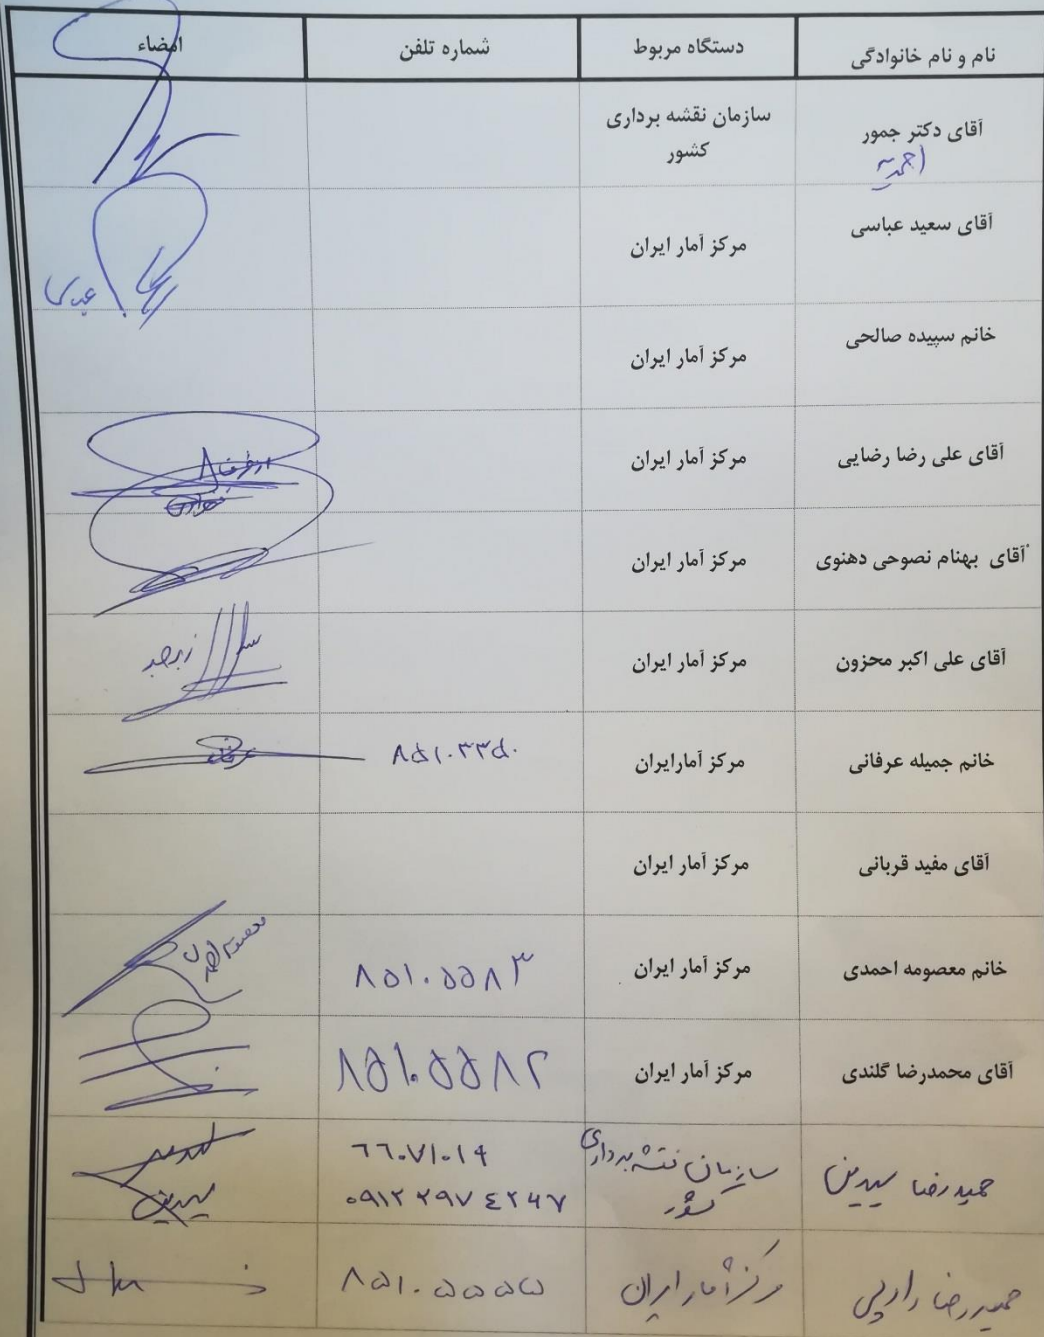 نام و نام خانوادگی دستگاه مربوط شماره تلفن امضاء
آقای دکتر جمور سازمان نقشه برداری
کشور
آقای سعید عباسی مرکز آمار ایران
خانم سپیده صالحی مرکز آمار ایران
آقای علی رضا رضایی مرکز آمار ایران
آقای بهنام نصوحی دهنوی مرکز آمار ایران
آقای علی اکبر محزون مرکز آمار ایران
خانم جمیله عرفانی مرکز آمارایران ۸۵۱۰۳۳۵۰ عرفانی
آقای مفید قربانی مرکز آمار ایران
خانم معصومه احمدی مرکز آمار ایران ۸۵۱۰۵۵۸۳ معصومه احمدی
آقای محمدرضا گلندی مرکز آمار ایران ۸۵۱۰۵۵۸۲
حمیدرضا سیدین سازمان نقشه برداری کشور ۶۶۰۷۱۰۱۹
۰۹۱۲۲۹۷۴۲۶۷ سیدین
حمیدرضا مرکز آمار ایران ۸۵۱۰۵۵۵۵